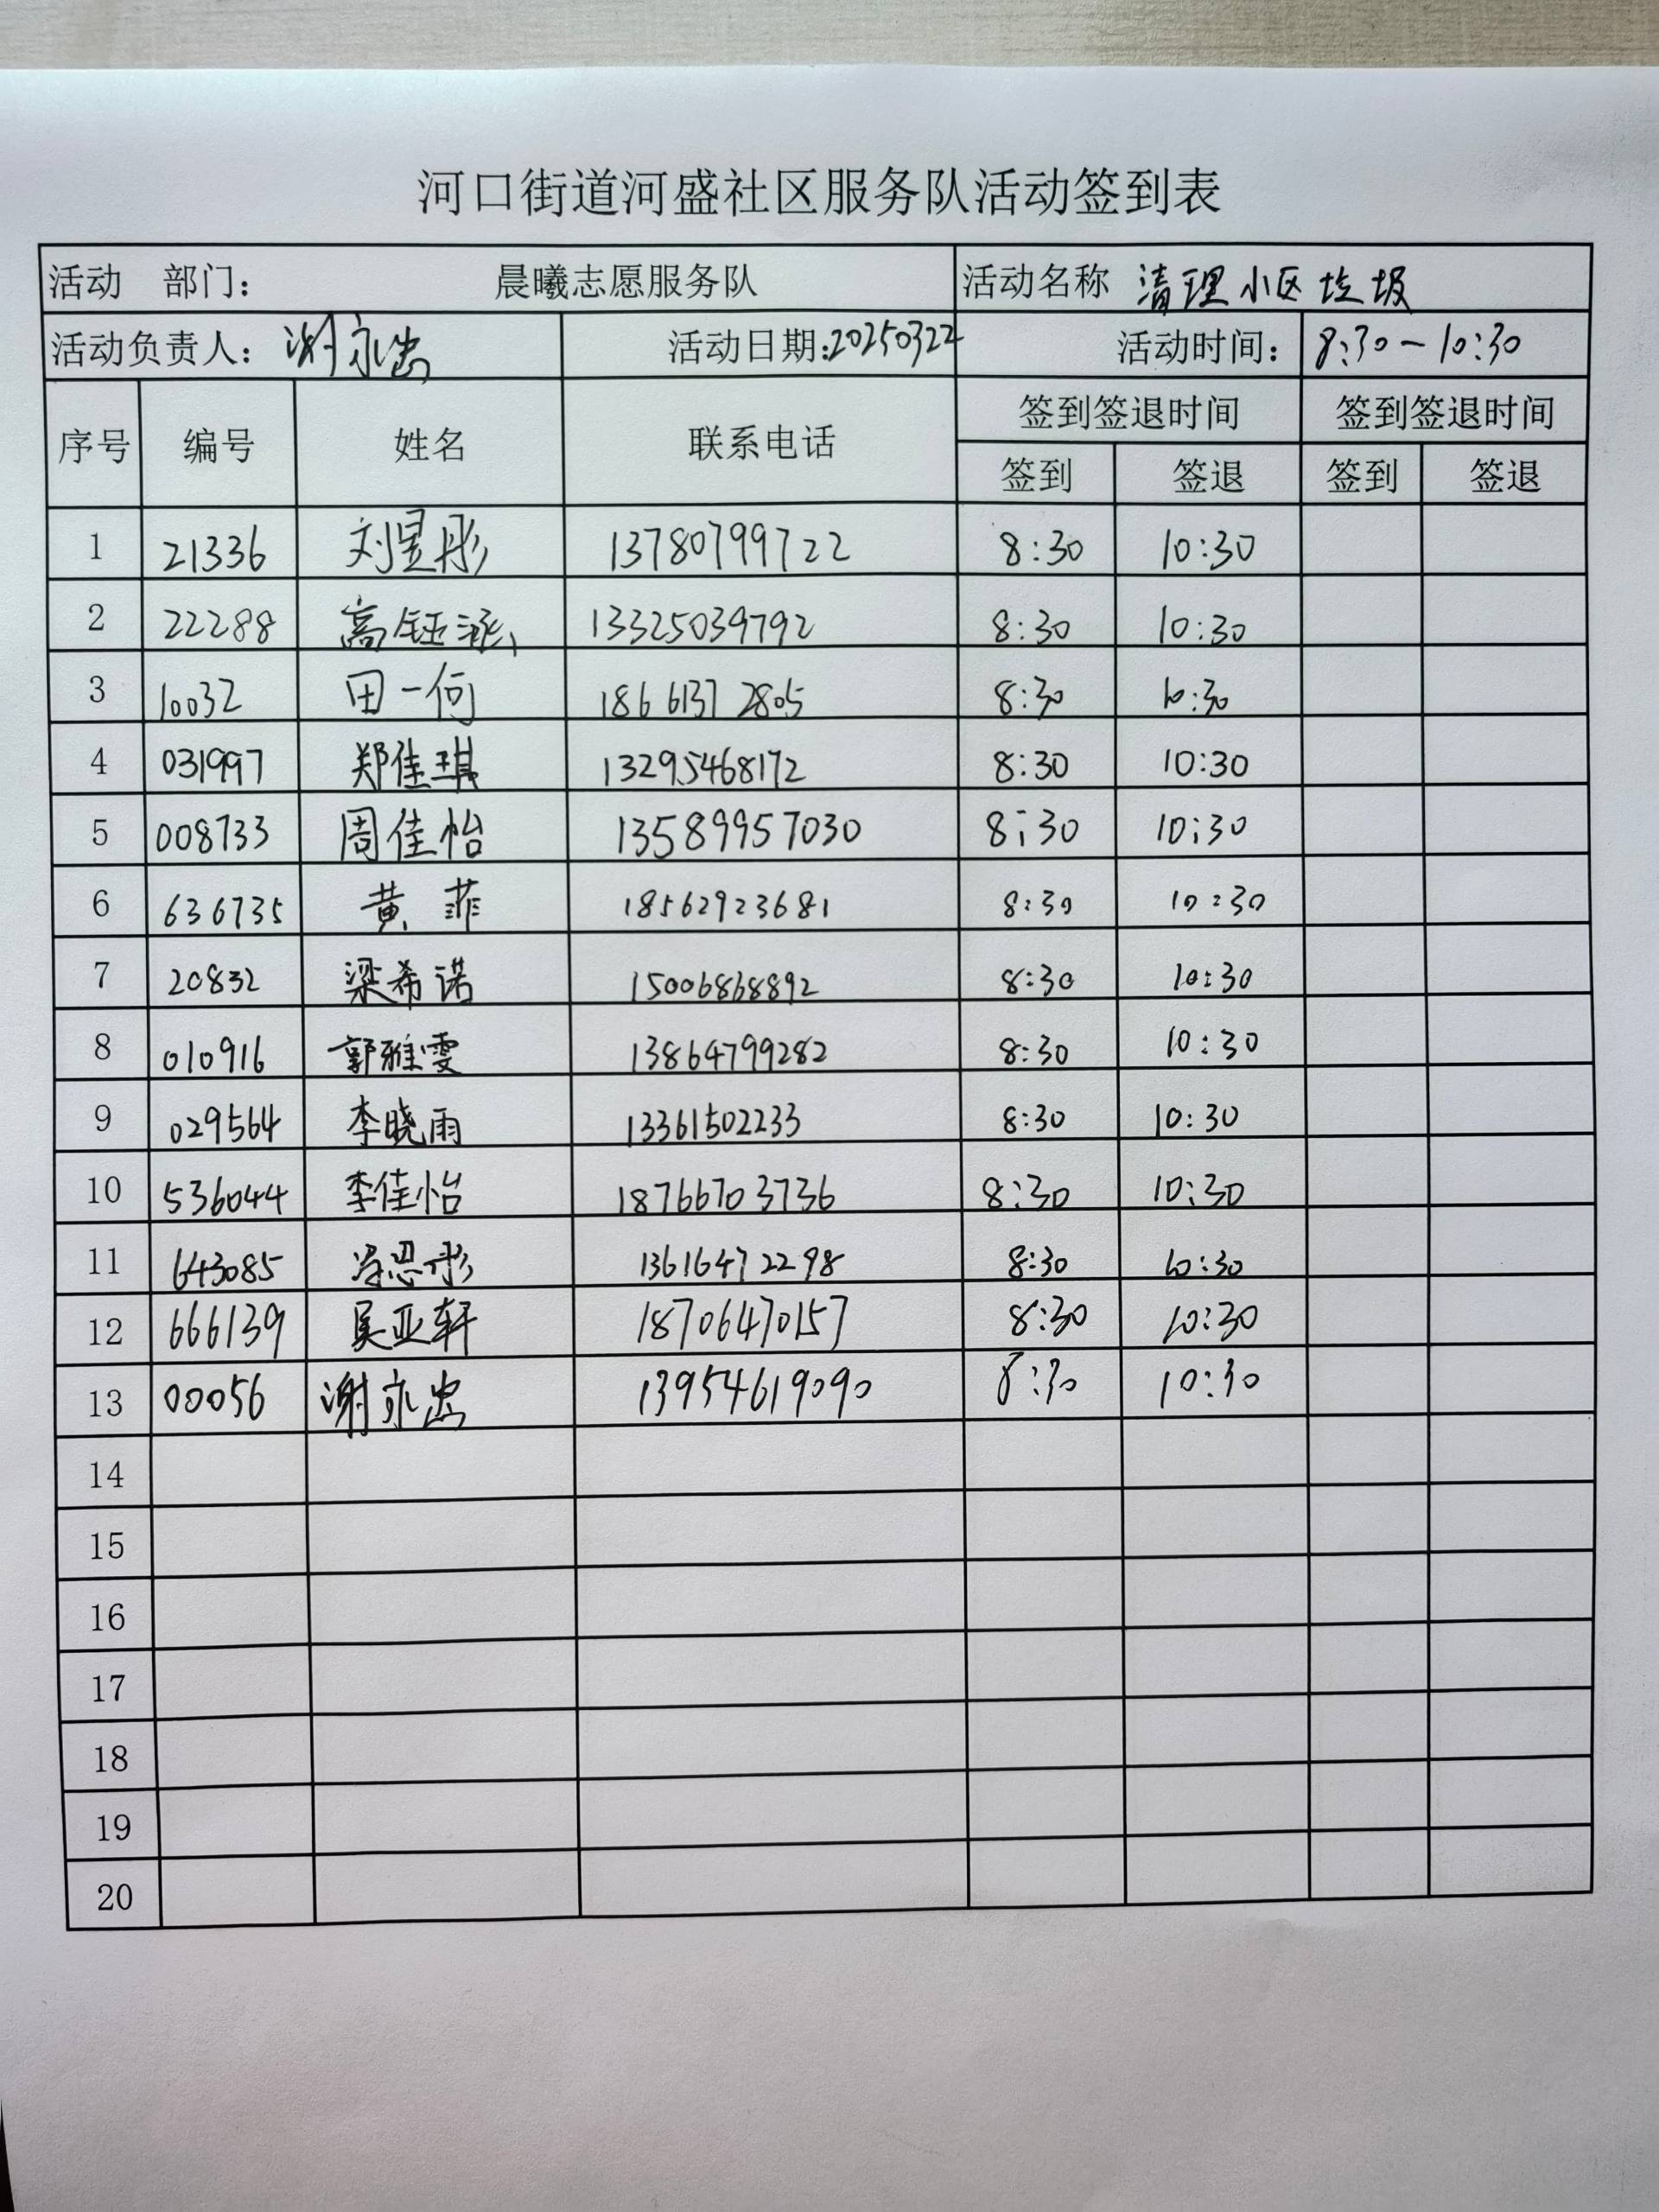 河口街道河盛社区服务队活动签到表
活动 部门： 晨曦志愿服务队 活动名称 清理小区垃圾
活动负责人：谢永忠 活动日期:20250322 活动时间： 8:30-10:30
序号 编号 姓名 联系电话 签到签退时间 签到签退时间
签到 签退 签到 签退
1 21336 刘昱彤 13780799722 8:30 10:30
2 22288 高钰涵 13325039792 8:30 10:30
3 10032 田一何 18661372805 8:30 10:30
4 031997 郑佳琪 13295468172 8:30 10:30
5 008733 周佳怡 13589957030 8:30 10:30
6 636735 黄菲 18562923681 8:30 10:30
7 20832 梁希诺 15006868892 8:30 10:30
8 010916 郭雅雯 13864799282 8:30 10:30
9 029564 李晓雨 13361502233 8:30 10:30
10 536044 李佳怡 18766703736 8:30 10:30
11 643085 13616472298 8:30 10:30
12 666139 吴亚轩 18706470157 8:30 10:30
13 00056 谢永忠 13954619090 8:30 10:30
14
15
16
17
18
19
20